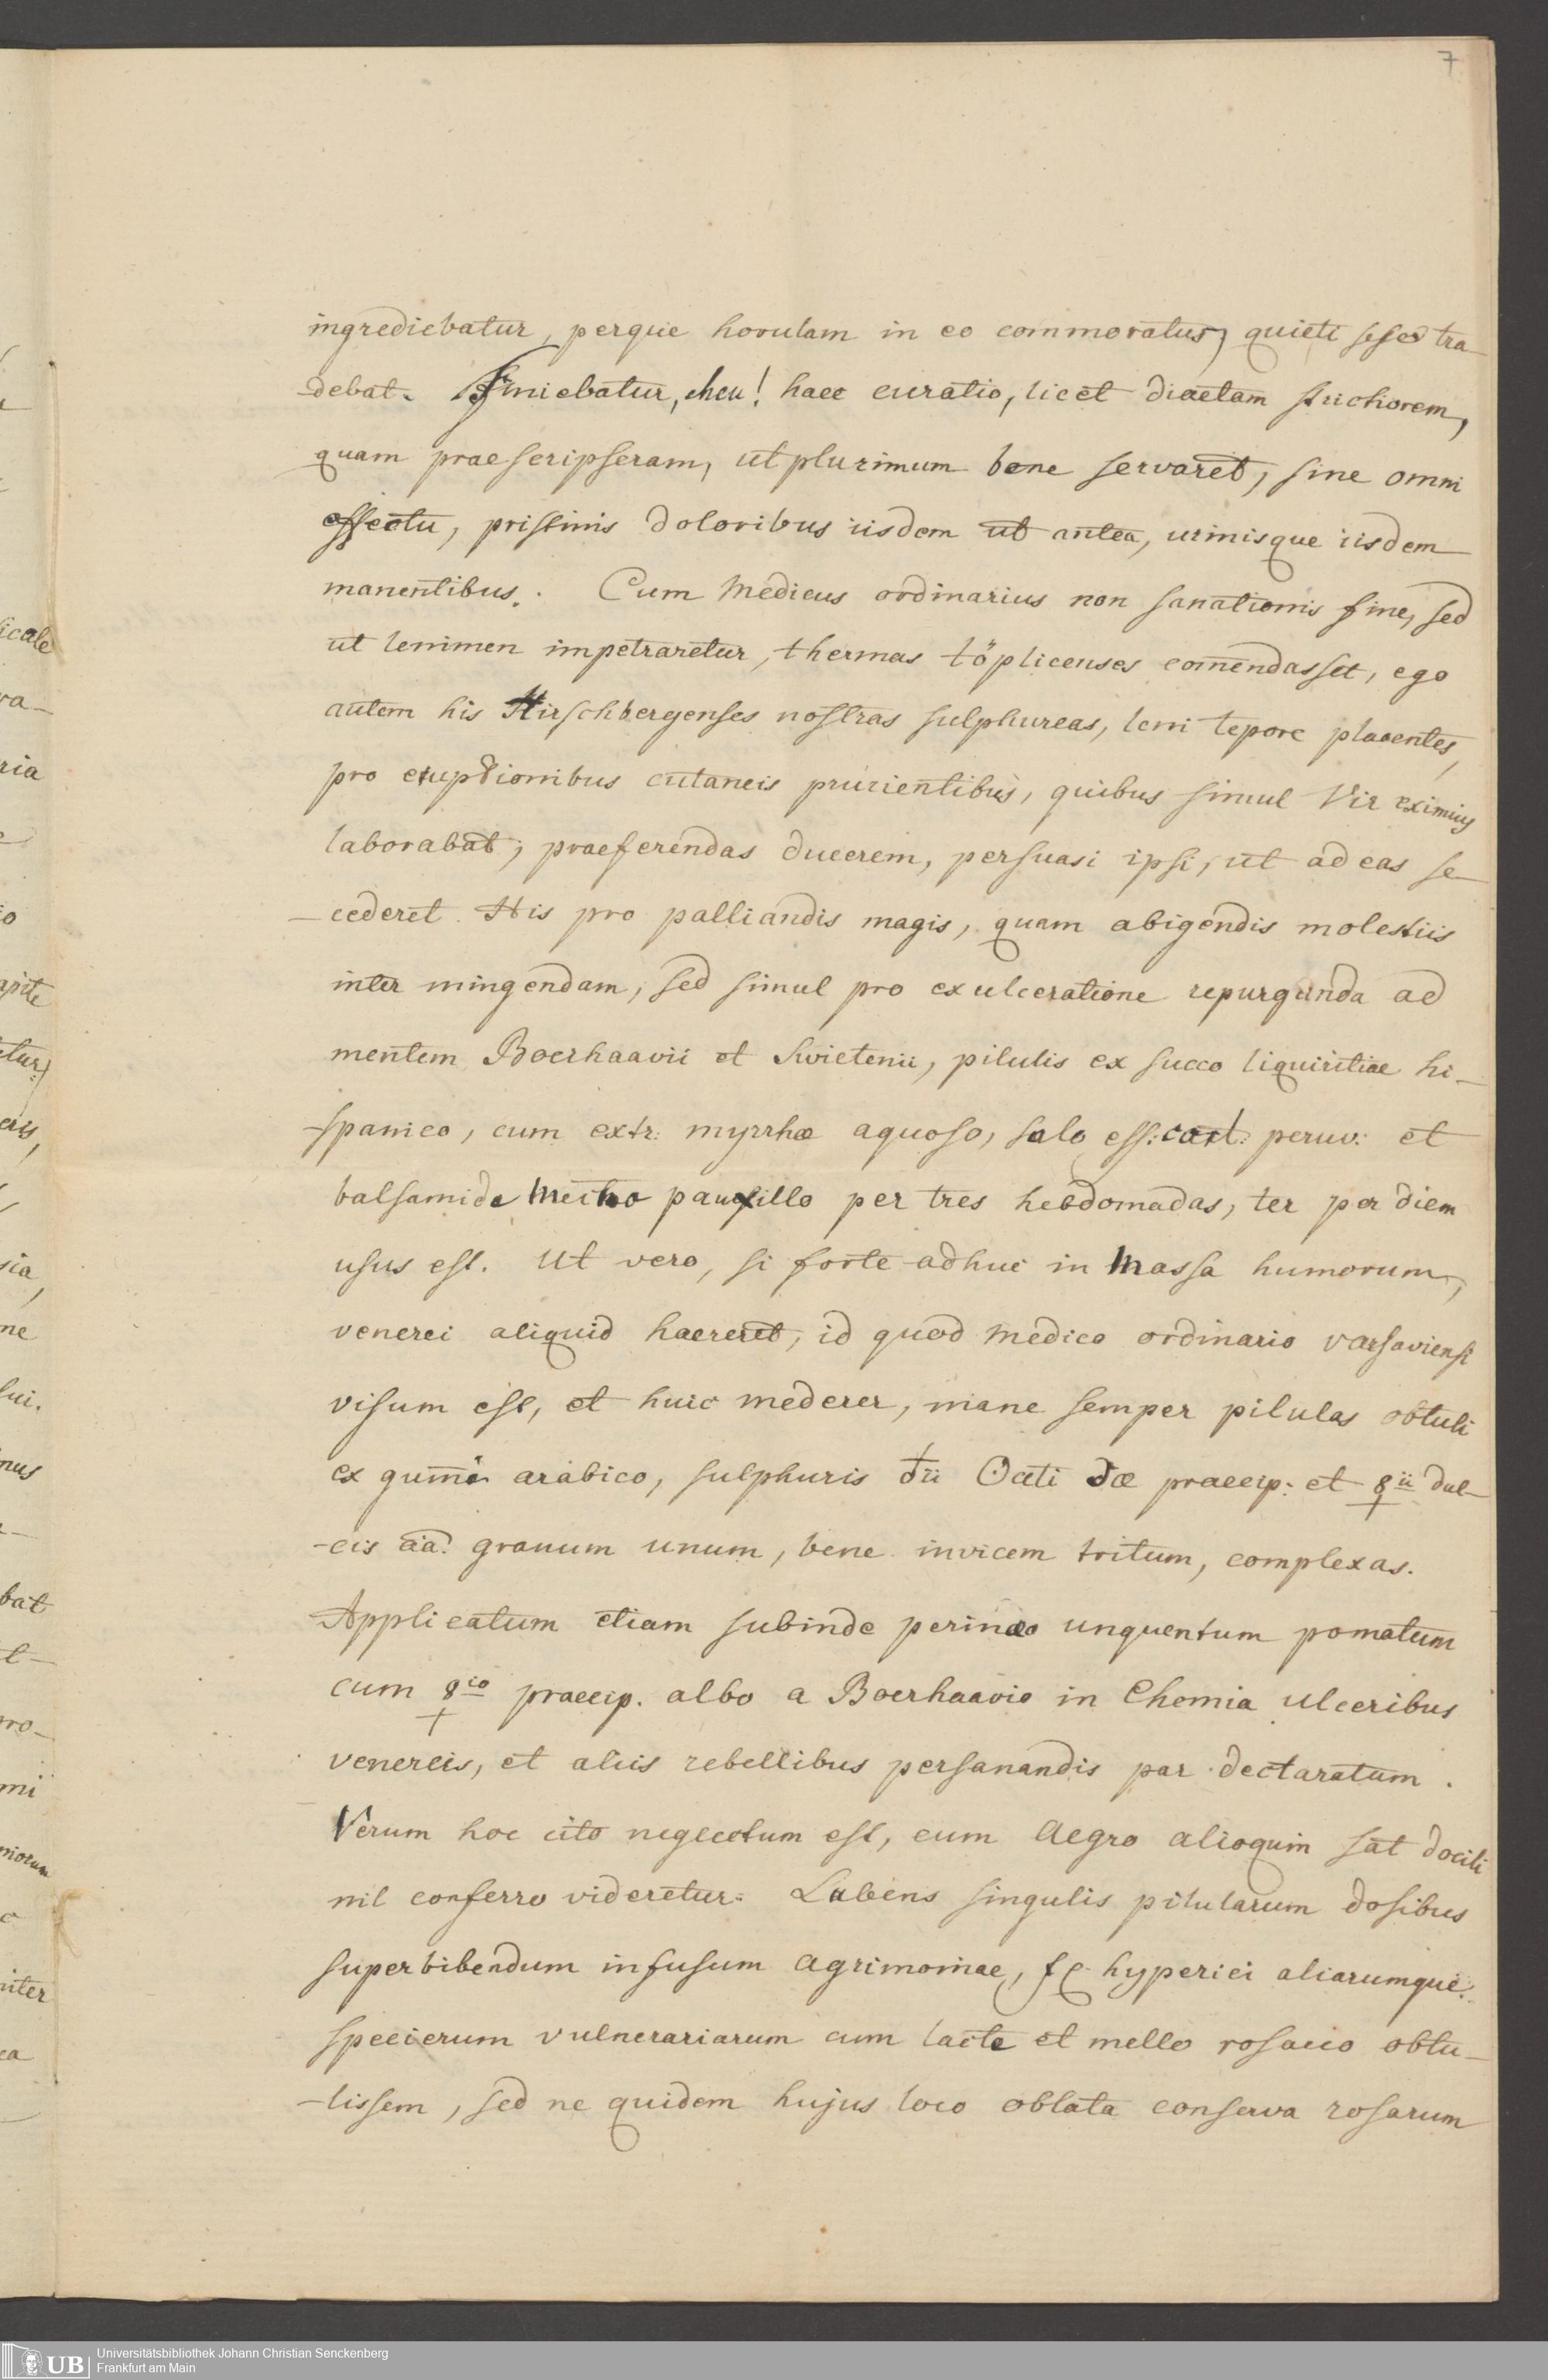 7
ingrediebatur, perque horulam in eo commoratus, quieti sese tra-
-debat. Finiebatur, eheu! haec curatio, licet diaetam strictiorem,
quam praescripseram, utplurimum bene servaret, sine omni
effectu, pristinis doloribus iisdem ut antea, urinisque iisdem
manentibus. Cum Medicus ordinarius non sanationis fine, sed
ut lenimen impetraretur, thermas töplicenses com̅endasset, ego
autem his Hirschbergenses nostras sulphureas, leni tepore placentes,
pro eruptionibus cutaneis prurientibus, quibus simul Vir eximius
laborabat, praeferendas ducerem, persuasi ipsi, ut ad eas se-
-cederet. His pro palliandis magis, quam abigendis molestiis
inter mingendam, sed simul pro exulceratione repurganda ad
mentem Boerhaavii et Swietenii, pilulis ex succo liquiritiae hi-
-spanico, cum extr: myrrhæ aquoso, sale ess: cort: peruv: et
balsami de Mecha pauxillo per tres hebdomadas, ter per diem
usus est. Ut vero, si forte adhuc in Massa humorum,
venerei aliquid haereret, id quod Medico ordinario varsaviensi
visum est, et huic mederer, mane semper pilulas obtuli
ex gum̅i arabico, sulphuris ♁ii ☉ati dæ praecip: et ☿ii dul-
-cis aa̅. granum unum, bene invicem tritum, complexas.
Applicatum etiam subinde perinæo unguentum pomatum
cum ☿io praecip. albo a Boerhaavio in Chemia ulceribus
venereis, et aliis rebellibus persanandis par declaratum.
Verum hoc cito neglectum est, cum Aegro alioquin sat docili
nil conferre videretur. Lubens singulis pilularum dosibus
superbibendum infusum Agrimoniae, fl. hyperici aliarumque
specierum vulnerariarum cum lacte et melle rosaceo obtu-
-lissem, sed ne quidem hujus loco oblata conserva rosarum
icale
va-
ria
io
apite
etur)
eris,
sia,
ne
sui.
nus
bat
t-
pro-
mi
c
niter
ea
UB
Universitätsbibliothek Johann Christian Senckenberg
Frankfurt am Main